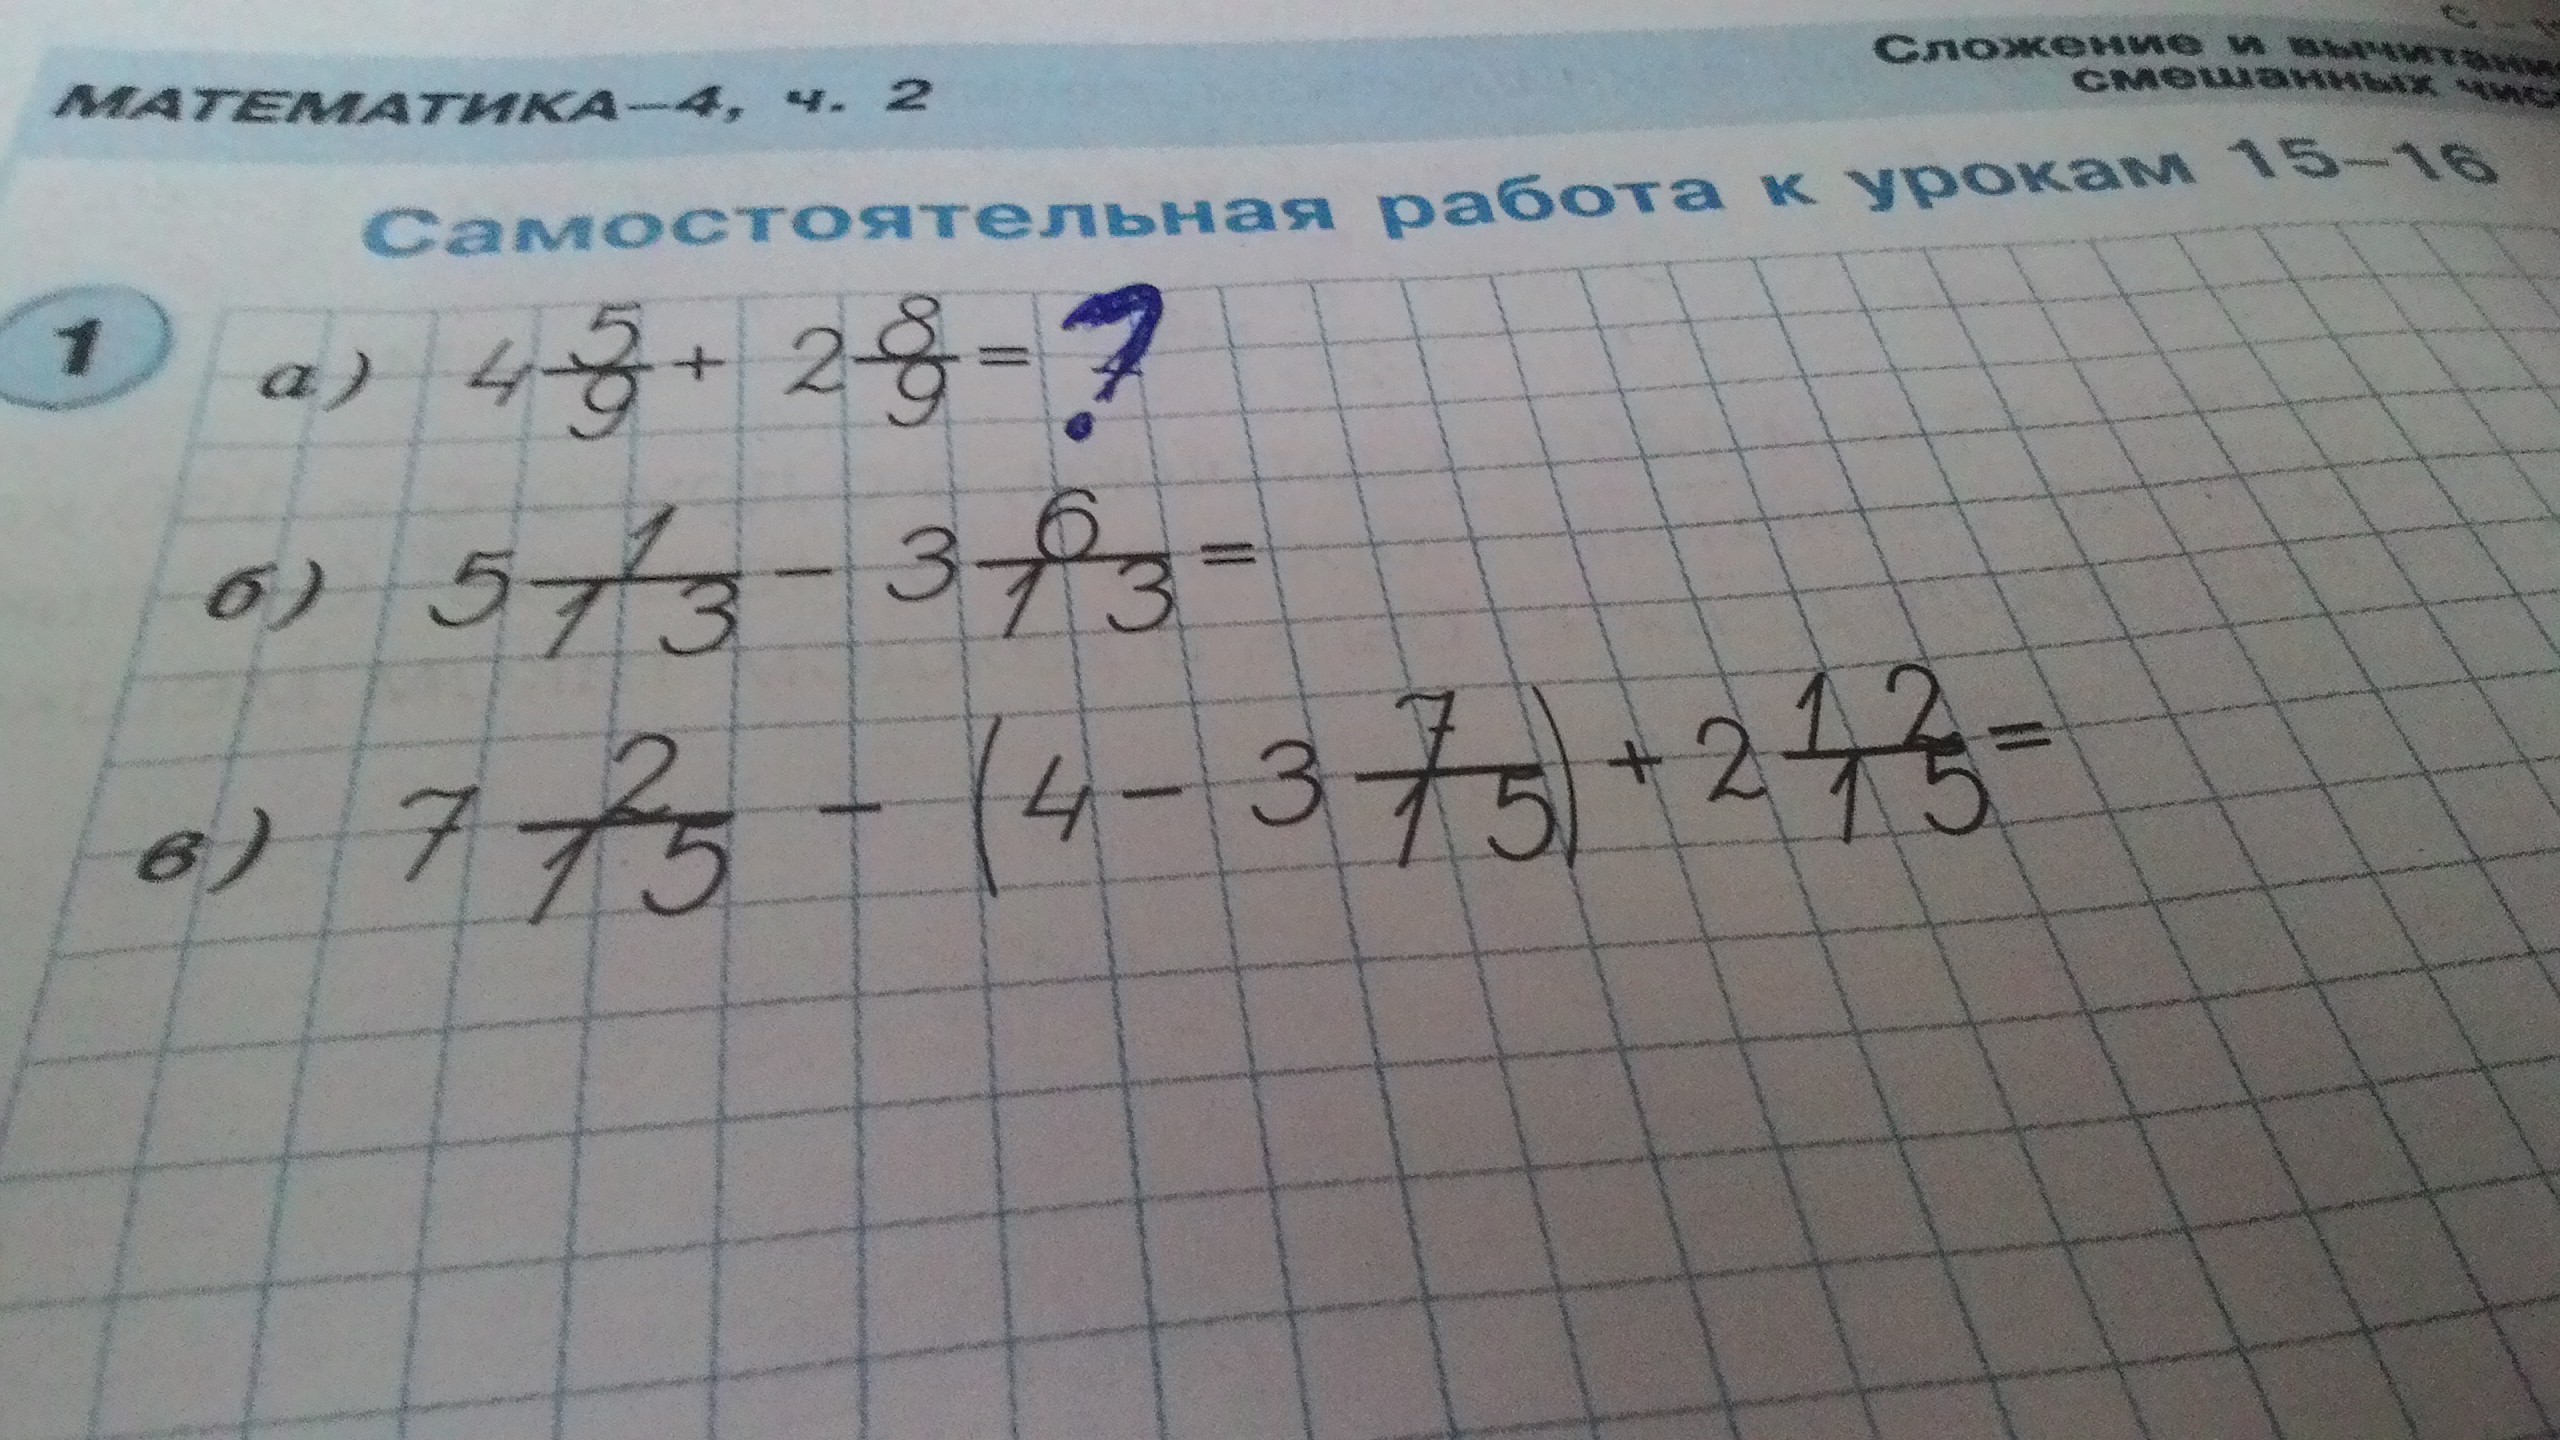 МАТЕМАТИКА–4, ч. 2
Сложение и
смешанных
Самостоятельная работа к урокам 15–16
1 а) 4 5/9 + 2 8/9 = ?
б) 5 1/13 − 3 6/13 =
в) 7 2/15 − (4 − 3 7/15) + 2 12/15 =